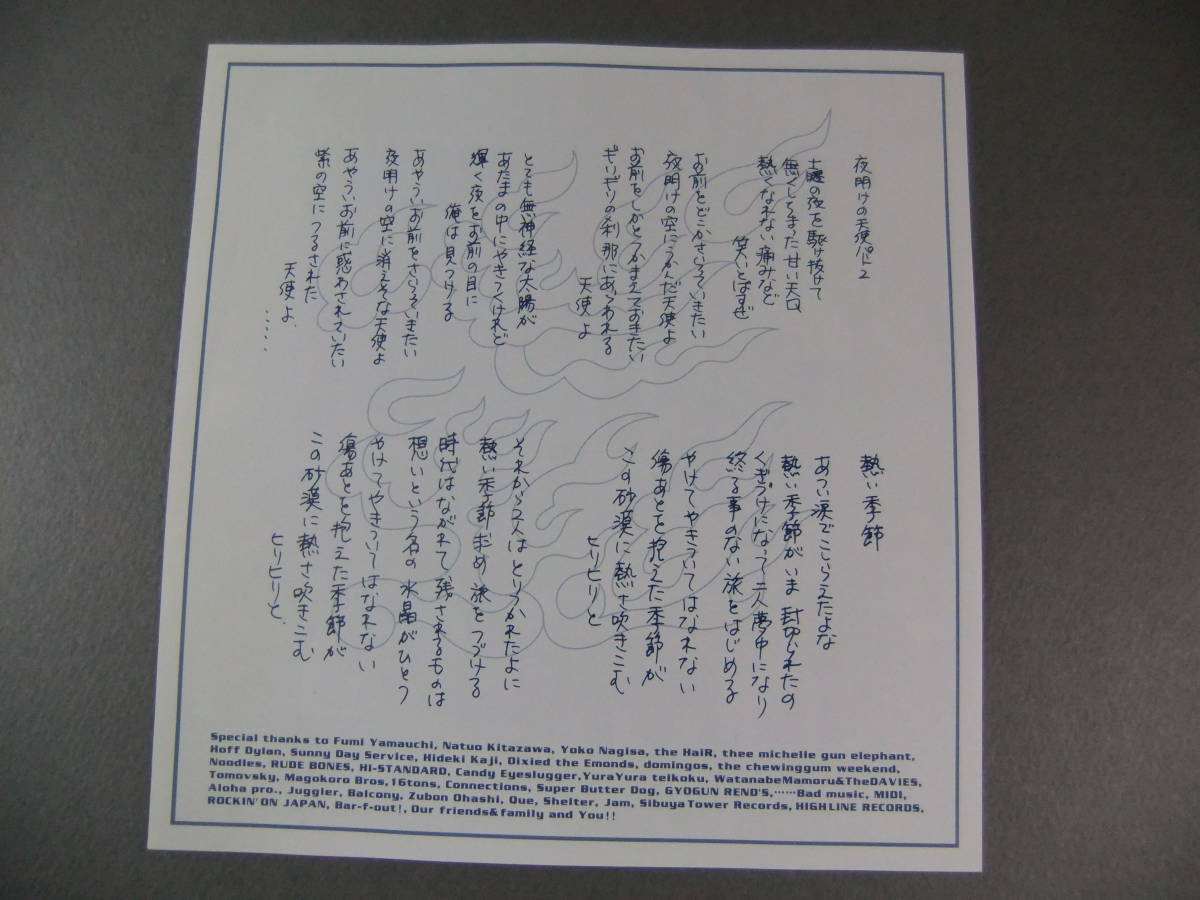 夜明けの天使パート2
土曜の夜を駆け抜けて
無くしちまった甘い天Q
熱くなれない痛みなど
笑いとばすぜ
お前をどこかさらっていきたい
夜明けの空にうかんだ天使よ
お前をしかとつかまえておきたい
ギリギリの刹那にあらわれる
天使よ
とても無神経な太陽が
あたまの中にやきつくけれど
輝く夜をお前の目に
俺は見つける
あやういお前をさらっていきたい
夜明けの空に消えそな天使よ
あやういお前に惑わされていたい
紫の空につるされた
天使よ.....
熱い季節
あつい涙でこしらえたよな
熱い季節がいま 封切られたの
くぎづけになって二人夢中になり
終る事のない旅をはじめる
やけてやきついてはなれない
傷あとを抱えた季節が
この砂漠に熱さ吹きこむ
ヒリヒリと
それから二人はとりつかれたよに
熱い季節求め 旅をつづける
時代はながれて残されるものは
想いという名の水晶がひとつ
やけてやきついてはなれない
傷あとを抱えた季節が
この砂漠に熱さ吹きこむ
ヒリヒリと.
Special thanks to Fumi Yamauchi, Natuo Kitazawa, Yoko Nagisa, the HaiR, thee michelle gun elephant,
Hoff Dylan, Sunny Day Service, Hideki Kaji, Dixied the Emonds, domingos, the chewinggum weekend,
Noodles, RUDE BONES, HI-STANDARD, Candy Eyeslugger,YuraYura teikoku, WatanabeMamoru&TheDAVIES,
Tomovsky, Magokoro Bros,16tons, Connections, Super Butter Dog, GYOGUN REND'S,······Bad music, MIDI,
Aloha pro., Juggler, Balcony, Zubon Ohashi, Que, Shelter, Jam, Sibuya Tower Records, HIGH LINE RECORDS,
ROCKIN'ON JAPAN, Bar-f-out!, Our friends&family and You!!